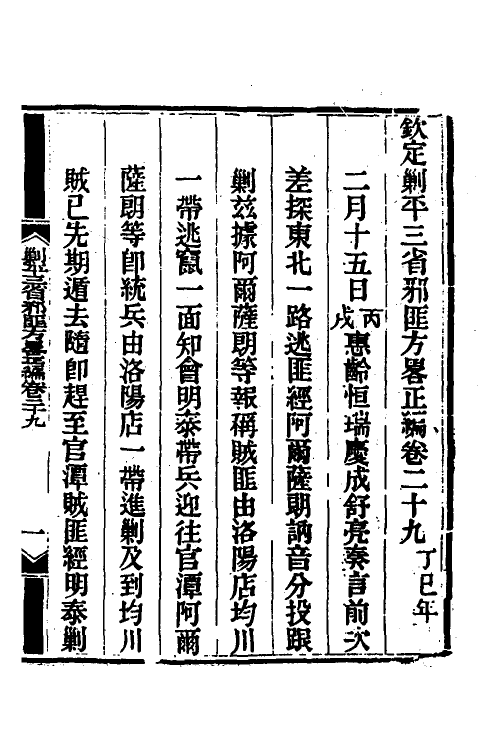 欽定剿平三省邪匪方畧正編卷二十九丁巳年
二月十五日丙戌惠齡恒瑞慶成舒亮奏言前次
差探東北一路逃匪經阿爾薩朗訥音分投跟
剿兹據阿爾薩朗等報稱賊匪由洛陽店均川
一帶逃竄一面知會明泰帶兵迎往官潭阿爾
薩朗等卽統兵由洛陽店一帶進剿及到均川
賊已先期遁去隨卽趕至官潭賊匪經明泰剿
剿平三省邪匪方畧正編卷二十九
一